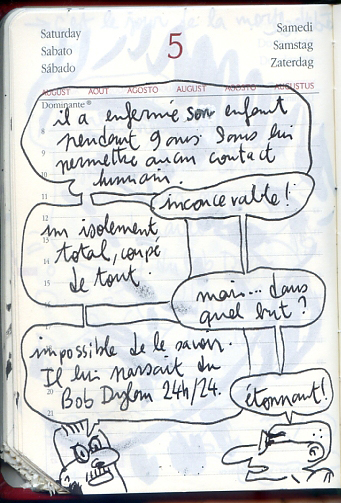 Saturday
Sabato
Sábado
5
Samedi
Samstag
Zaterdag
AUGUST AOUT AGOSTO AUGUST AGOSTO AUGUSTUS
Dominante®
il a enfermé son enfant
pendant 9 ans sans lui
permettre aucun contact
humain.
inconcevable!
un isolement
total, coupé
de tout.
mais... dans
quel but?
impossible de le savoir.
Il lui passait du
Bob Dylan 24h/24.
étonnant!